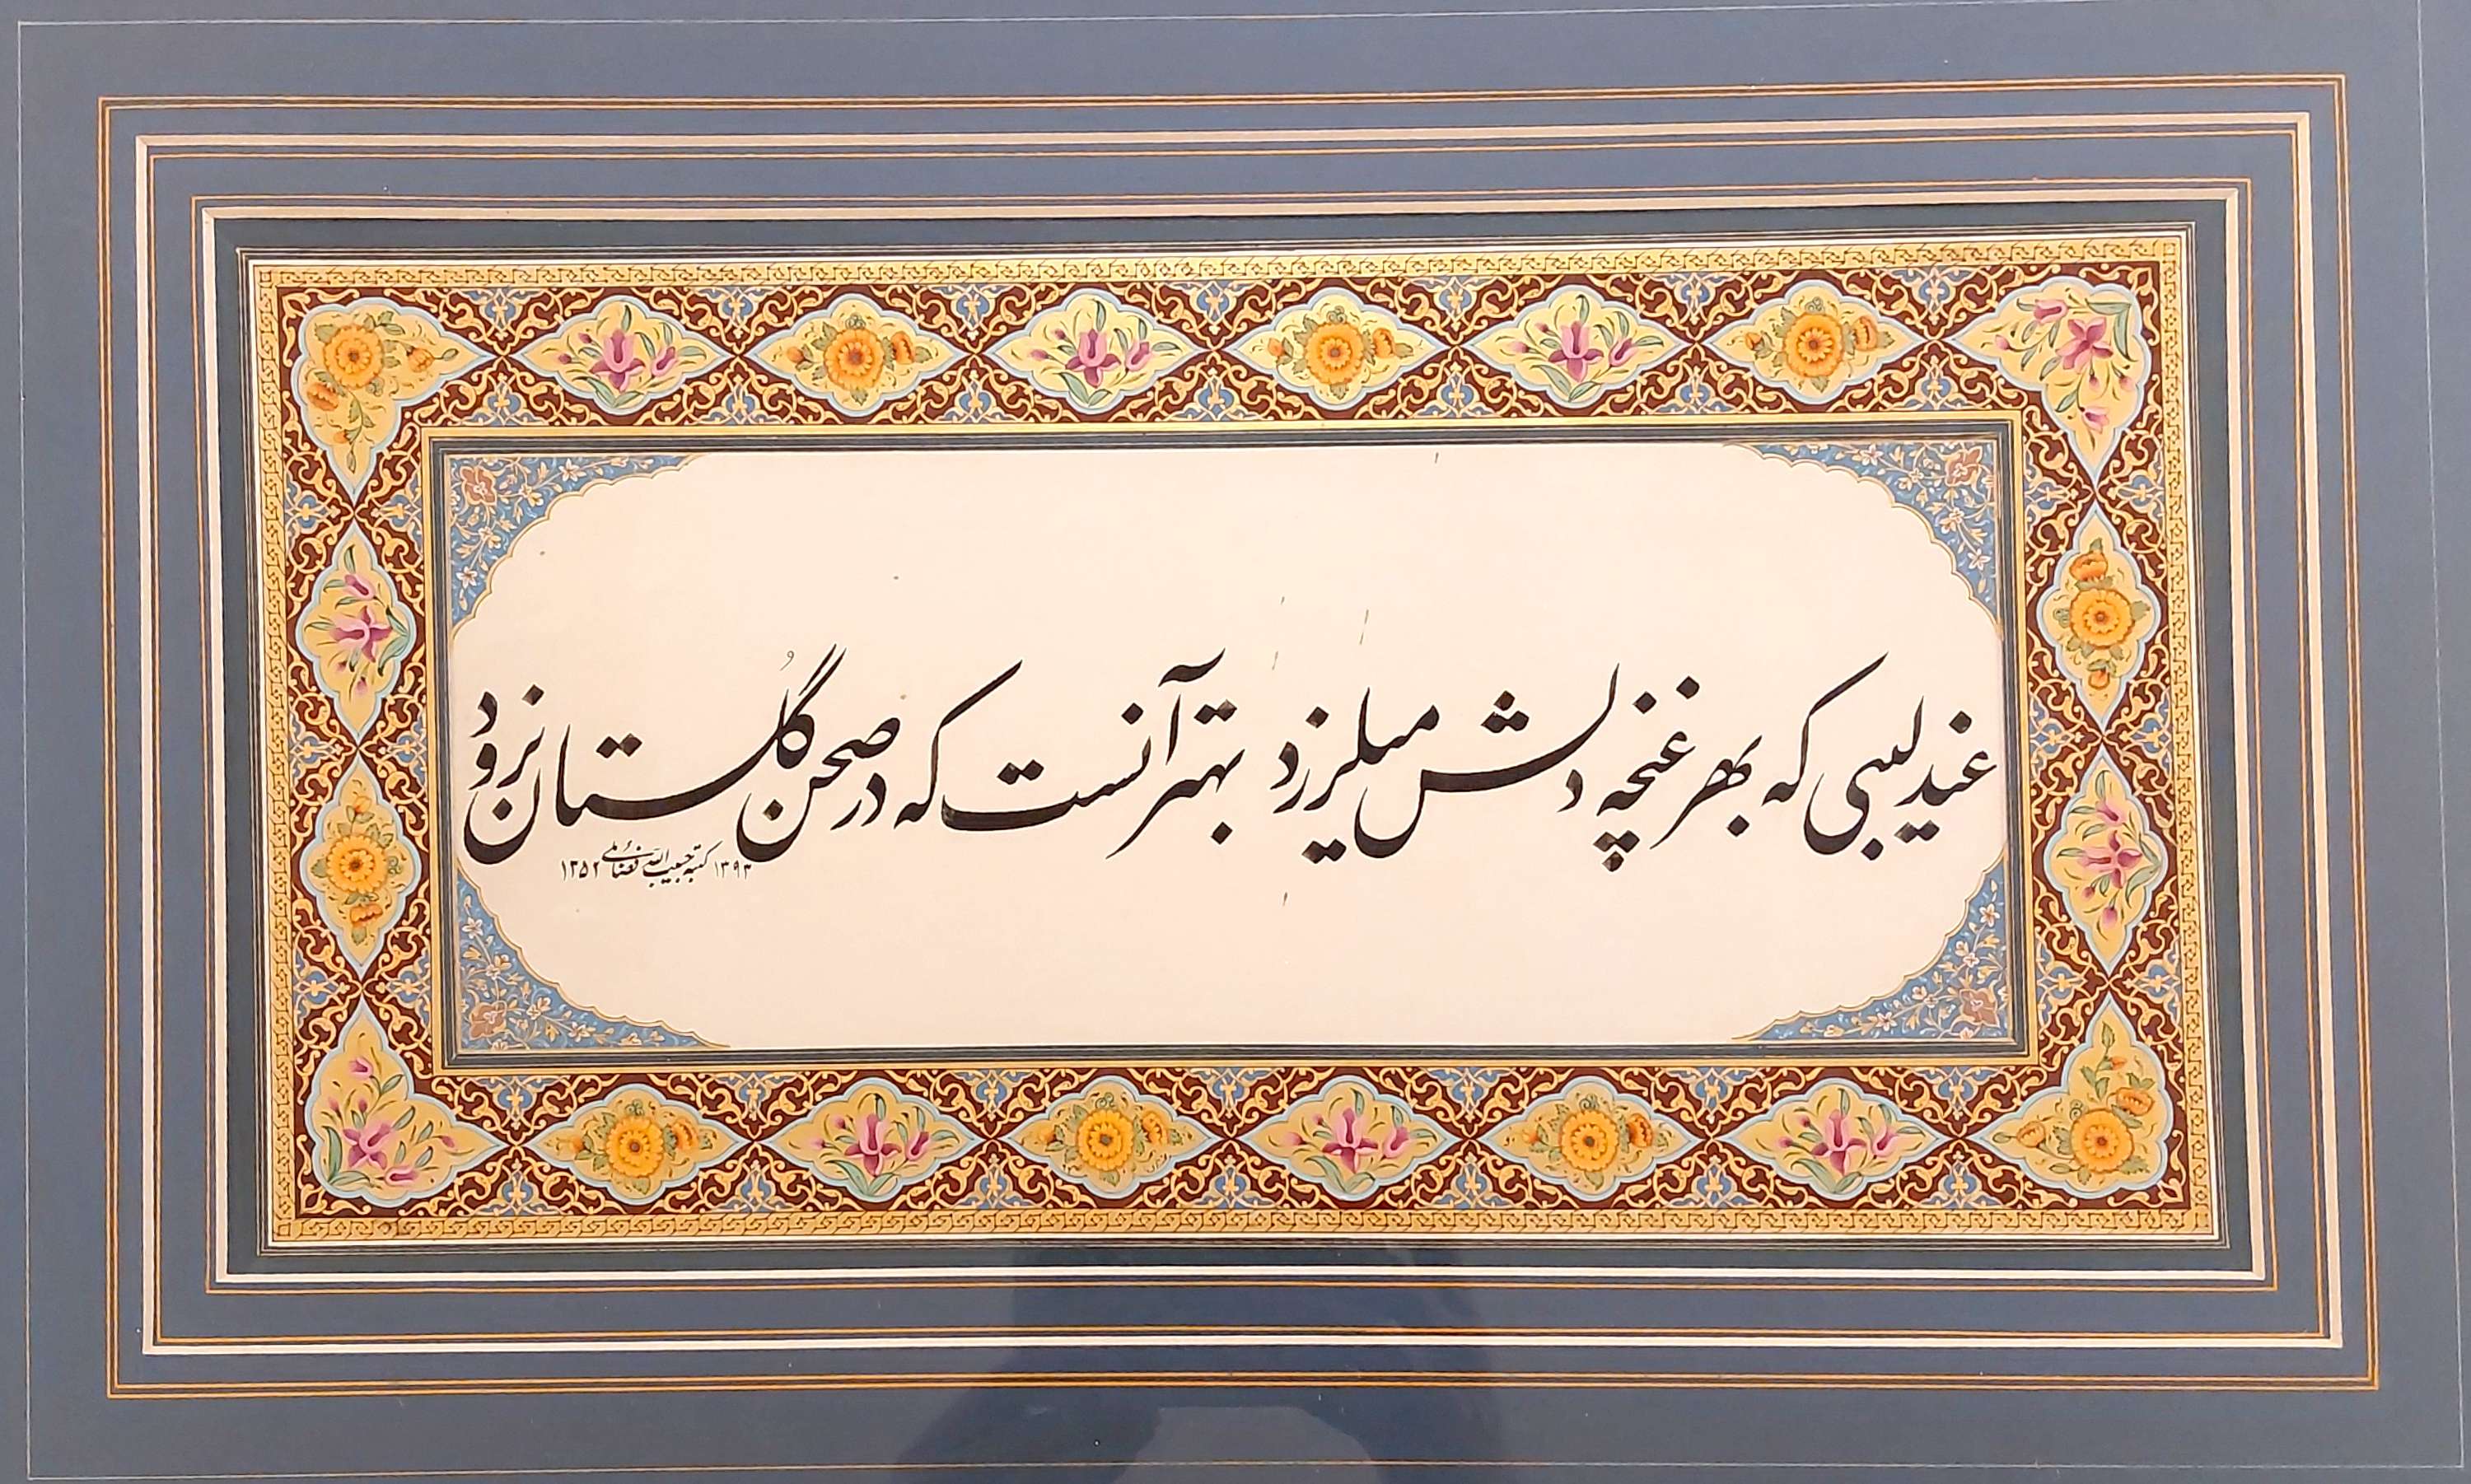 عندلیبی که بهر غنچه دلش میلرزد بهتر آنست که در صحن گلستان نرود
۱۳۹۳ کتبه حبیب الله فضائلی ۱۳۵۲